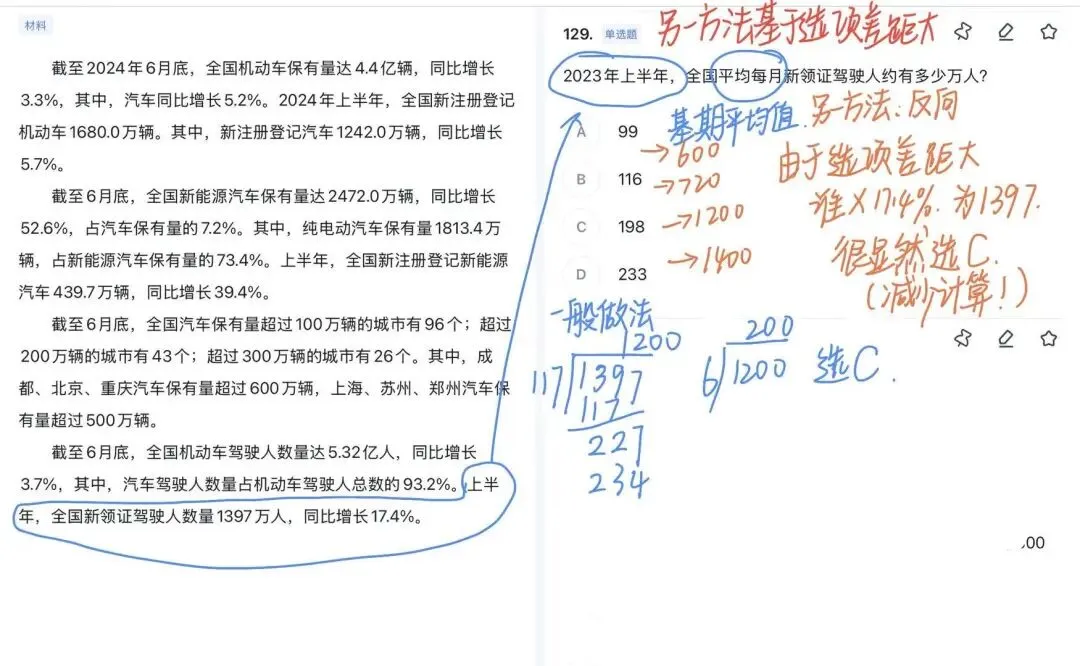 材料
截至2024年6月底，全国机动车保有量达4.4亿辆，同比增长
3.3%，其中，汽车同比增长5.2%。2024年上半年，全国新注册登记
机动车1680.0万辆。其中，新注册登记汽车1242.0万辆，同比增长
5.7%。
截至6月底，全国新能源汽车保有量达2472.0万辆，同比增长
52.6%，占汽车保有量的7.2%。其中，纯电动汽车保有量1813.4万
辆，占新能源汽车保有量的73.4%。上半年，全国新注册登记新能源
汽车439.7万辆，同比增长39.4%。
截至6月底，全国汽车保有量超过100万辆的城市有96个；超过
200万辆的城市有43个；超过300万辆的城市有26个。其中，成
都、北京、重庆汽车保有量超过600万辆，上海、苏州、郑州汽车保
有量超过500万辆。
截至6月底，全国机动车驾驶人数量达5.32亿人，同比增长
3.7%，其中，汽车驾驶人数量占机动车驾驶人总数的93.2%。上半
年，全国新领证驾驶人数量1397万人，同比增长17.4%。
129. 单选题
另一方法基于选项差距大
2023年上半年，全国平均每月新领证驾驶人约有多少万人？
A 99
基期平均值
→600
B 116
→720
C 198
→1200
D 233
→1400
另方法：反向
由于选项差距大
谁×17.4%.为1397.
很显然选C.
（减少计算！）
一般做法
1200
117 1397
117
227
234
200
6 1200
选C.
00